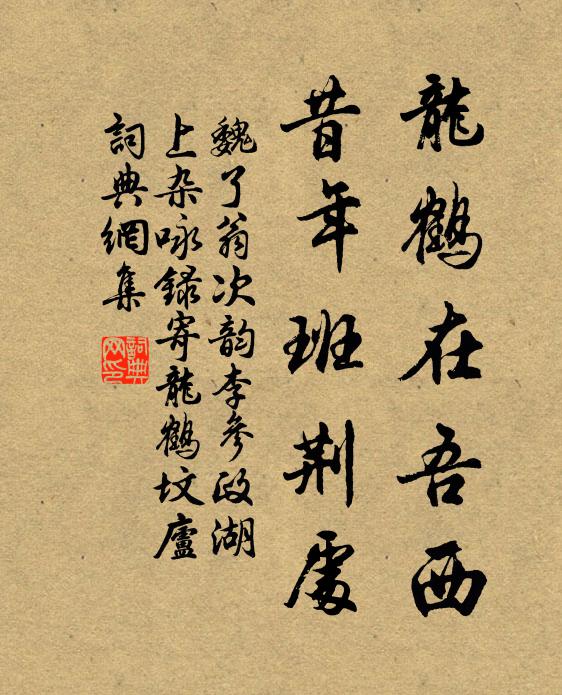 龍鶴在吾西
昔年班荆處
魏了翁次韵李參政湖
上杂咏錄寄龍鶴坟廬
詞典網集
詞典網印